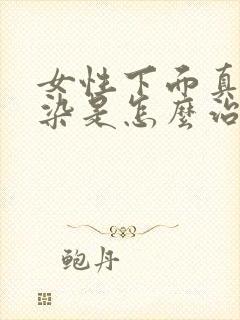 女性下面真
染是怎麼治
鲍丹